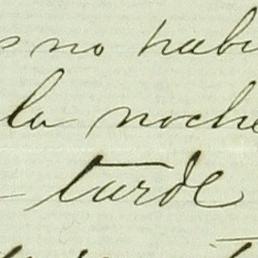 no habi
la noche
tarde